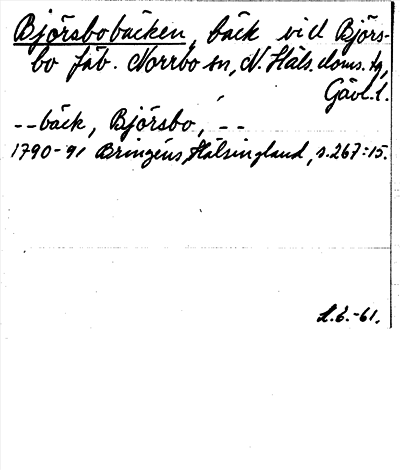 Björsbobäcken, bäck vid Björs-
bo fäb. Norrbo sn, N. Häls. doms. tg,
Gävl. l.
--bäck, Björsbo, --
1790-91 Bringéus, Hälsingland, s. 267:15.
L.É.-61.